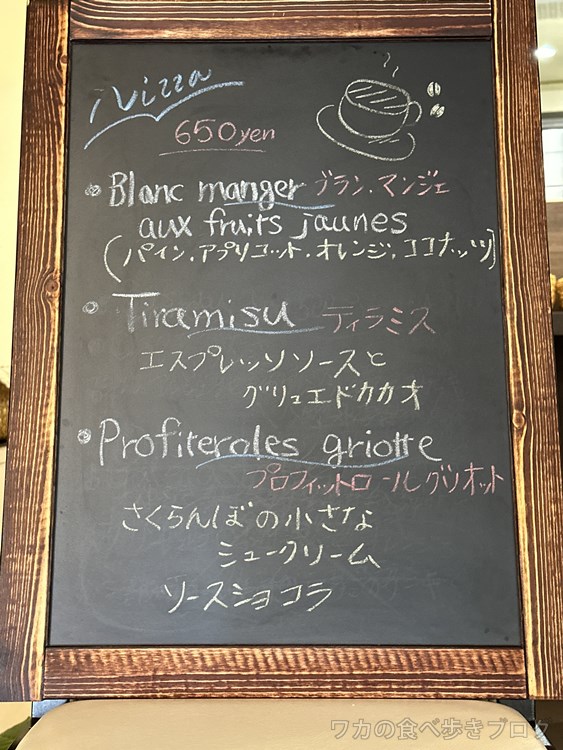 Nizza
650yen
• Blanc manger ブラン.マンジェ
aux fruits jaunes
(パイン.アプリコット.オレンジ.ココナッツ)
• Tiramisu ティラミス
エスプレッソソースと
グリュエドカカオ
• Profiteroles griotte
プロフィットロールグリオット
さくらんぼの小さな
シュークリーム
ソースショコラ
ワカの食べ歩きブログ